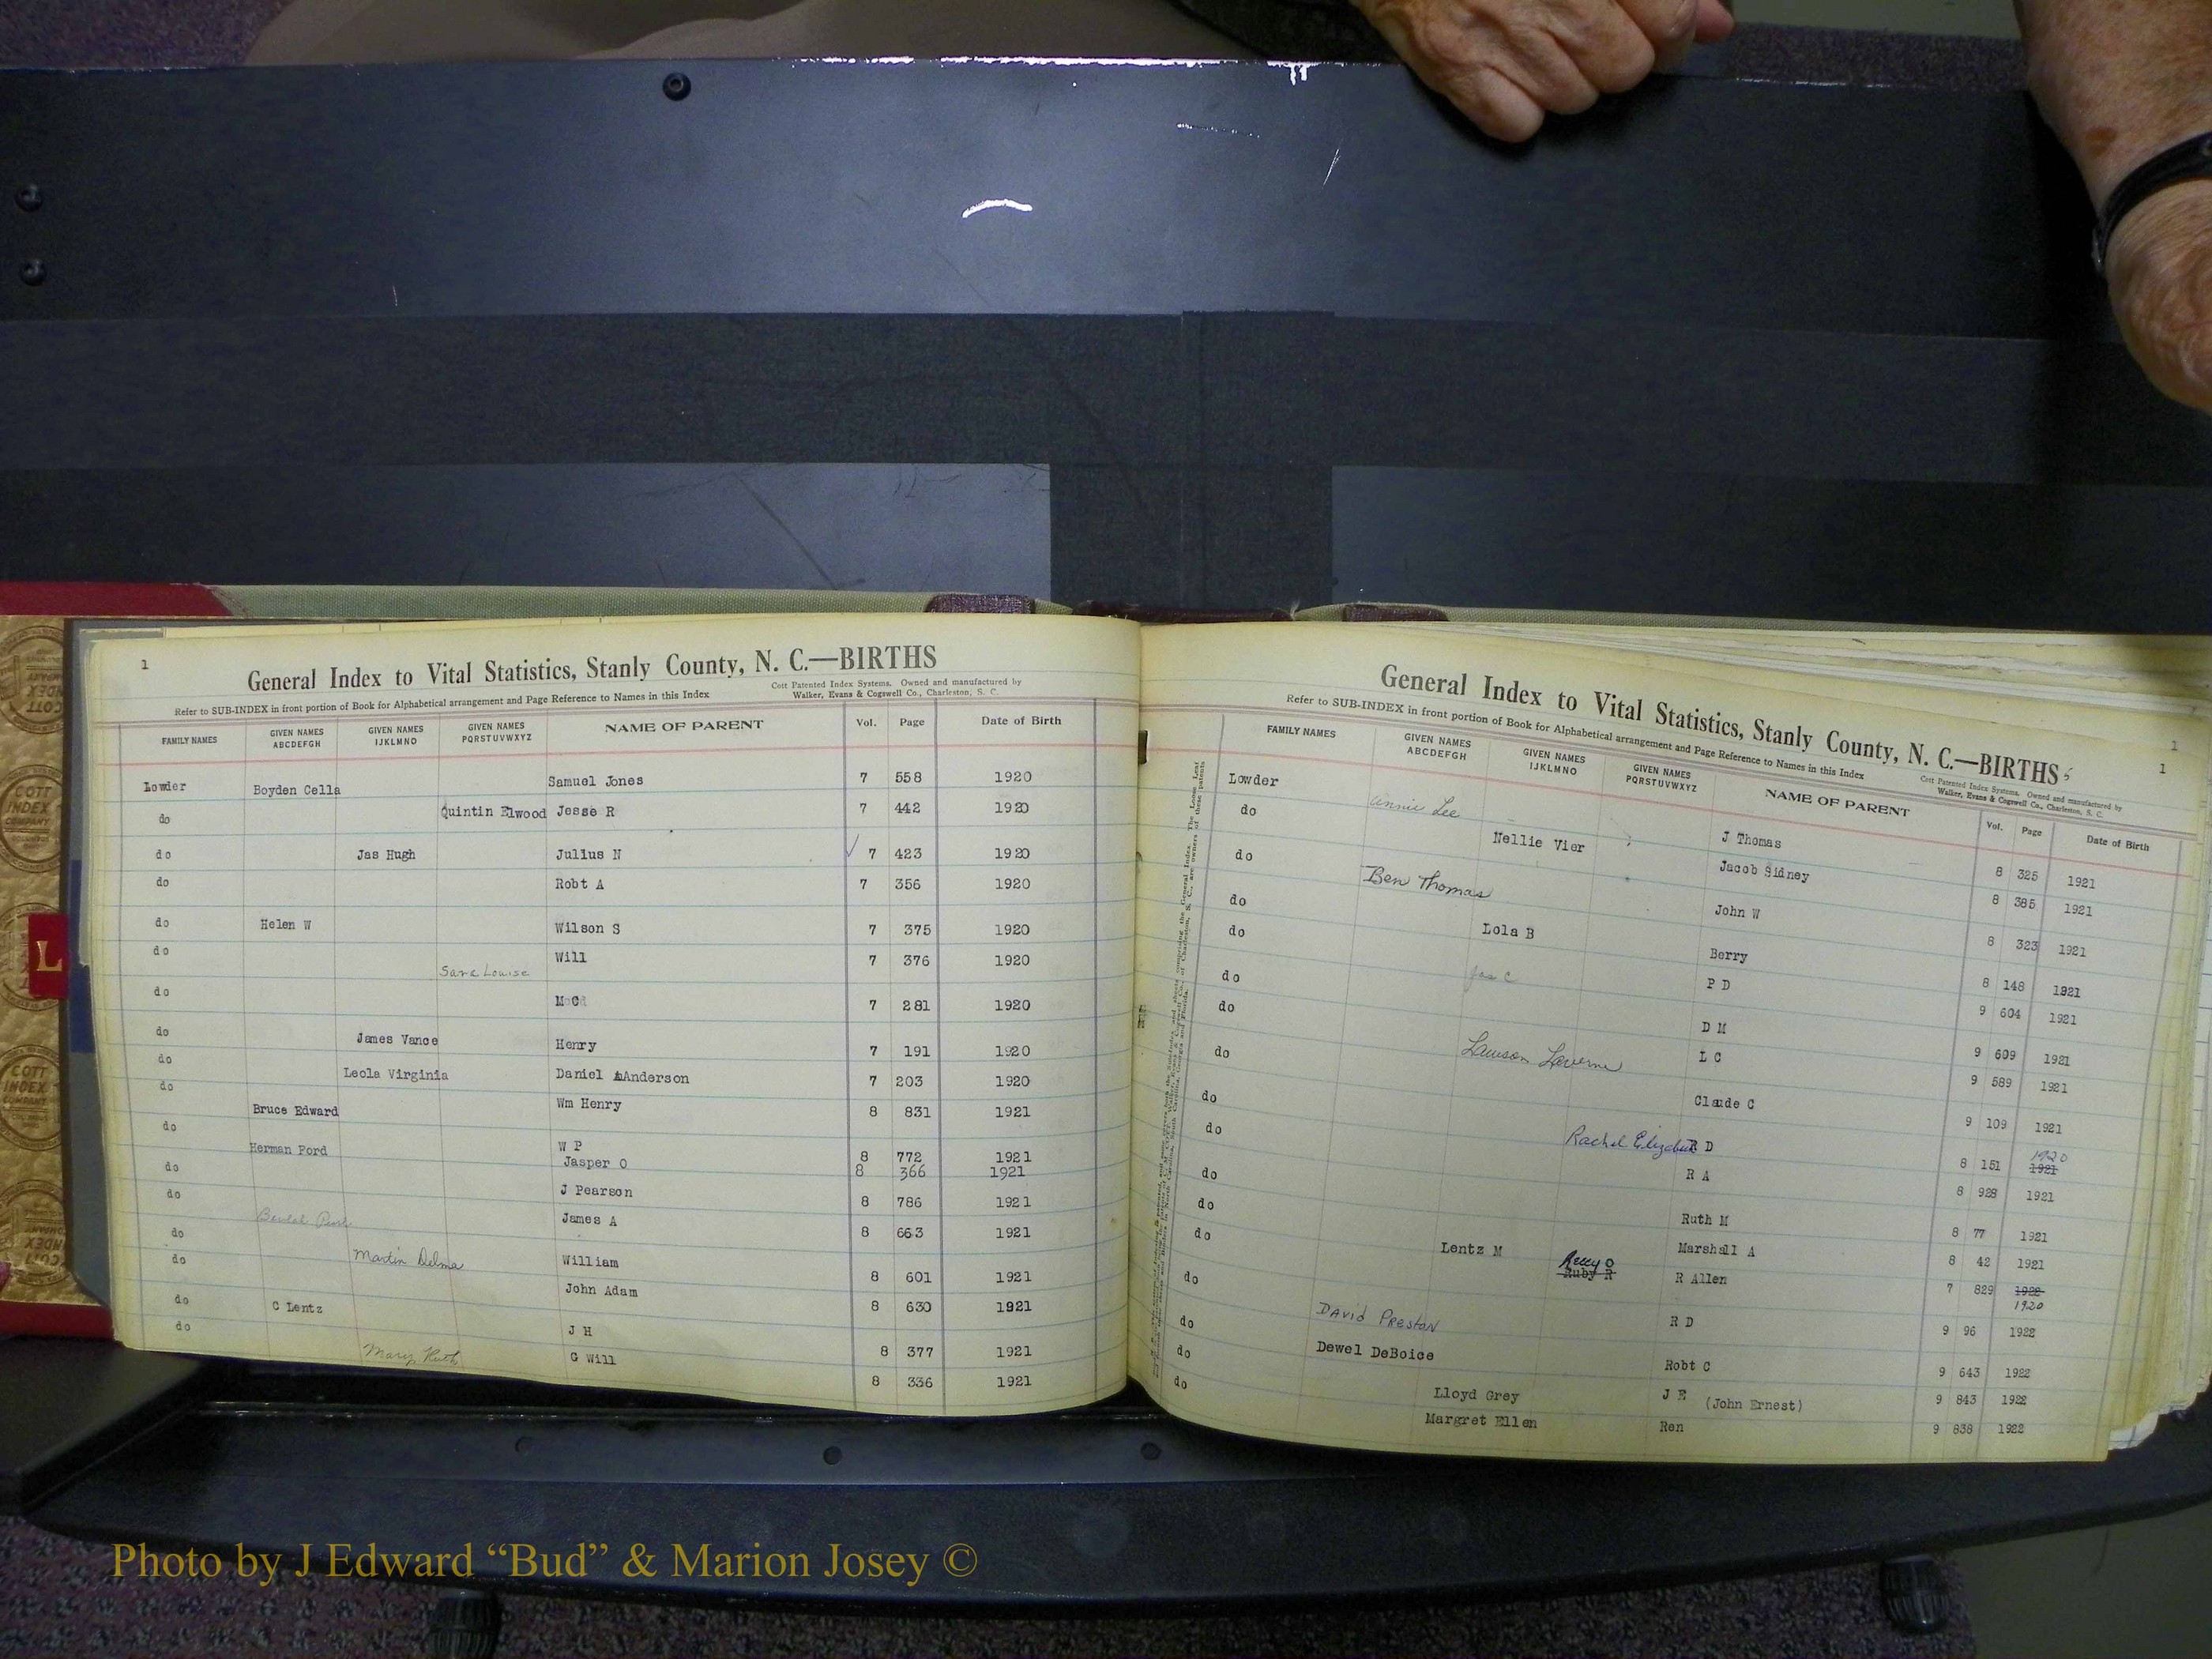 1
General Index to Vital Statistics, Stanly County, N. C.—BIRTHS
Refer to SUB-INDEX in front portion of Book for Alphabetical arrangement and Page Reference to Names in this Index
Cott Patented Index Systems. Owned and manufactured by
Walker, Evans & Cogswell Co., Charleston, S. C.
FAMILY NAMES GIVEN NAMES ABCDEFGH GIVEN NAMES IJKLMNO GIVEN NAMES PQRSTUVWXYZ NAME OF PARENT Vol. Page Date of Birth
Lowder Boyden Cella Samuel Jones 7 558 1920
do Quintin Elwood Jesse R 7 442 1920
do Jas Hugh Julius N 7 423 1920
do Robt A 7 356 1920
do Helen W Wilson S 7 375 1920
do Sara Louise Will 7 376 1920
do 7 281 1920
do James Vance Henry 7 191 1920
do Leola Virginia Daniel Anderson 7 203 1920
do Bruce Edward Wm Henry 8 831 1921
do Herman Ford W P 8 772 1921
Jasper O 8 366 1921
do J Pearson 8 786 1921
do James A 8 663 1921
do Martin Delma William 8 601 1921
do John Adam 8 630 1921
do C Lentz J H 8 377 1921
do Mary Ruth G Will 8 336 1921
General Index to Vital Statistics, Stanly County, N. C.—BIRTHS
1
1
Refer to SUB-INDEX in front portion of Book for Alphabetical arrangement and Page Reference to Names in this Index
Cott Patented Index Systems. Owned and manufactured by
Walker, Evans & Cogswell Co., Charleston, S. C.
FAMILY NAMES GIVEN NAMES ABCDEFGH GIVEN NAMES IJKLMNO GIVEN NAMES PQRSTUVWXYZ NAME OF PARENT Vol. Page Date of Birth
Lowder Annie Lee J Thomas 8 325 1921
do Nellie Vier Jacob Sidney 8 385 1921
do Ben Thomas John W 8 323 1921
do Lola B Berry 8 148 1921
do Jas C P D 9 604 1921
do D M 9 609 1921
do Lawson Laverne L C 9 589 1921
do Claude C 9 109 1921
do Rachel Elizabeth R D 8 151 1920 1921
do R A 8 928 1921
do Ruth M 8 77 1921
do Lentz M Marshall A 8 42 1921
do Ruby R R Allen 7 829 1922 1920
do David Preston R D 9 96 1922
do Dewel DeBoice Robt C 9 643 1922
do Lloyd Grey J E (John Ernest) 9 843 1922
do Margret Ellen Ren 9 838 1922
L
COTT INDEX COMPANY
COTT INDEX COMPANY
Photo by J Edward “Bud” & Marion Josey ©